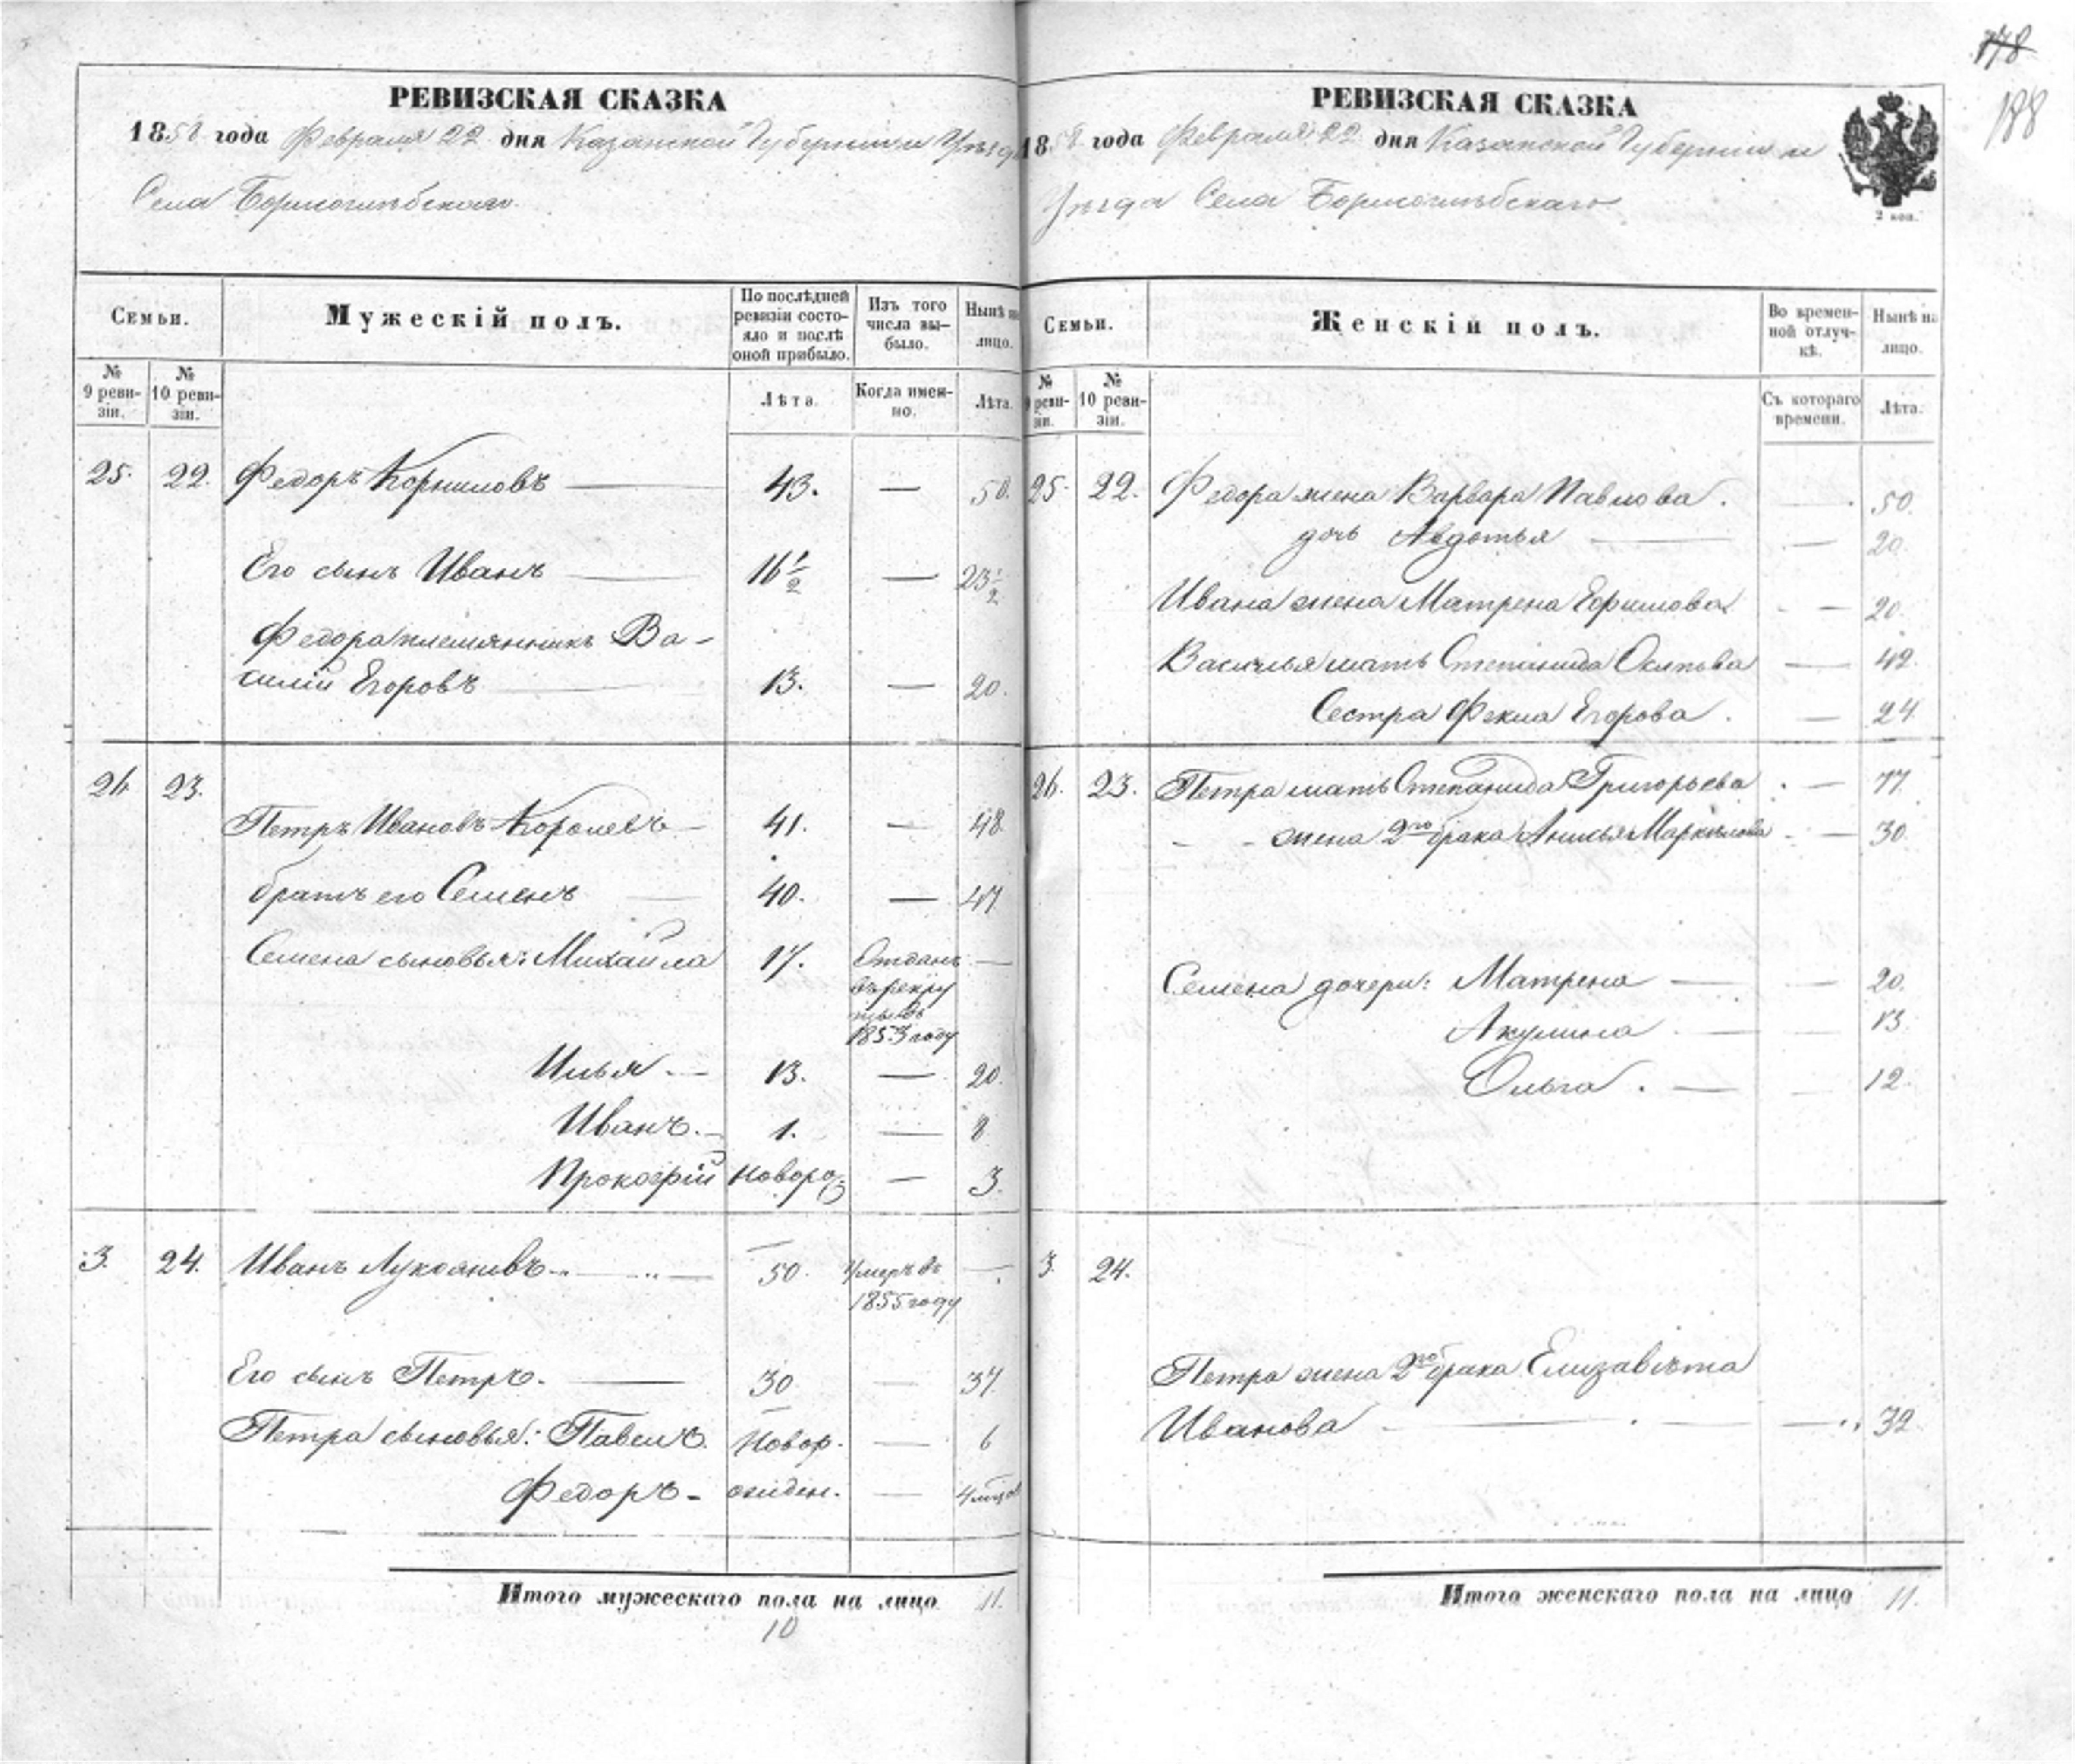 178
188
РЕВИЗСКАЯ СКАЗКА
1858 года Февраля 22 дня Казанской Губернии и Уезда
Села Борисоглебскаго
Семьи.
Мужескій полъ.
По послѣдней ревизіи состояло и послѣ оной прибыло.
Изъ того числа вы-было.
Нынѣ на лицо.
№ 9 реви-зіи.
№ 10 реви-зіи.
Лѣта.
Когда имен-но.
Лѣта.
25. 22. Федоръ Корниловъ 43. — 50.
Его сынъ Иванъ 16 1/2 — 23 1/2
Федора племянникъ Ва-
силій Егоровъ 13. — 20.
26 23.
Петръ Ивановъ Королевъ 41. — 48.
братъ его Семенъ 40. — 47.
Семена сыновья: Михайла 17. Отданъ —
въ рекру
ты въ
1853 году
Илья — 13. — 20.
Иванъ. — 1. — 8
Прокофій новоро — 3.
3. 24. Иванъ 50. Умеръ въ —
1855 году
Его сынъ Петръ. — 30 — 37
Петра сыновья: Павелъ. Новор. — 6
Федоръ — ожден. — 4 мѣсяц
Итого мужескаго пола на лицо 11.
10
РЕВИЗСКАЯ СКАЗКА
1858 года Февраля 22 дня Казанской Губернии и
Уезда Села Борисоглебскаго
2 коп.
Семьи.
Женскій полъ.
Во времен-ной отлуч-кѣ.
Нынѣ на лицо.
№ 9 реви-зіи.
№ 10 реви-зіи.
Съ котораго времени.
Лѣта.
25. 22. Федора жена Варвара Павлова. — 50.
дочь Авдотья — 20.
Ивана жена Матрена Ефимова — 20.
Василья мать Степанида Осипова — 42.
Сестра Фекла Егорова. — 24
26. 23. Петра мать Степанида Григорьева — 77.
жена 2го брака Анисья Маркелова — 30.
Семена дочери: Матрена — 20.
Акулина — 13
Ольга. — 12.
3. 24.
Петра жена 2го брака Елизавѣта
Иванова — 32.
Итого женскаго пола на лицо 11.